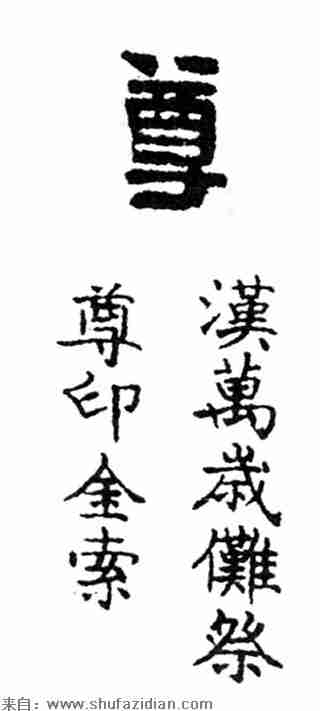 尊
漢萬歲儺祭
尊印金索
来自：www.shufazidian.com